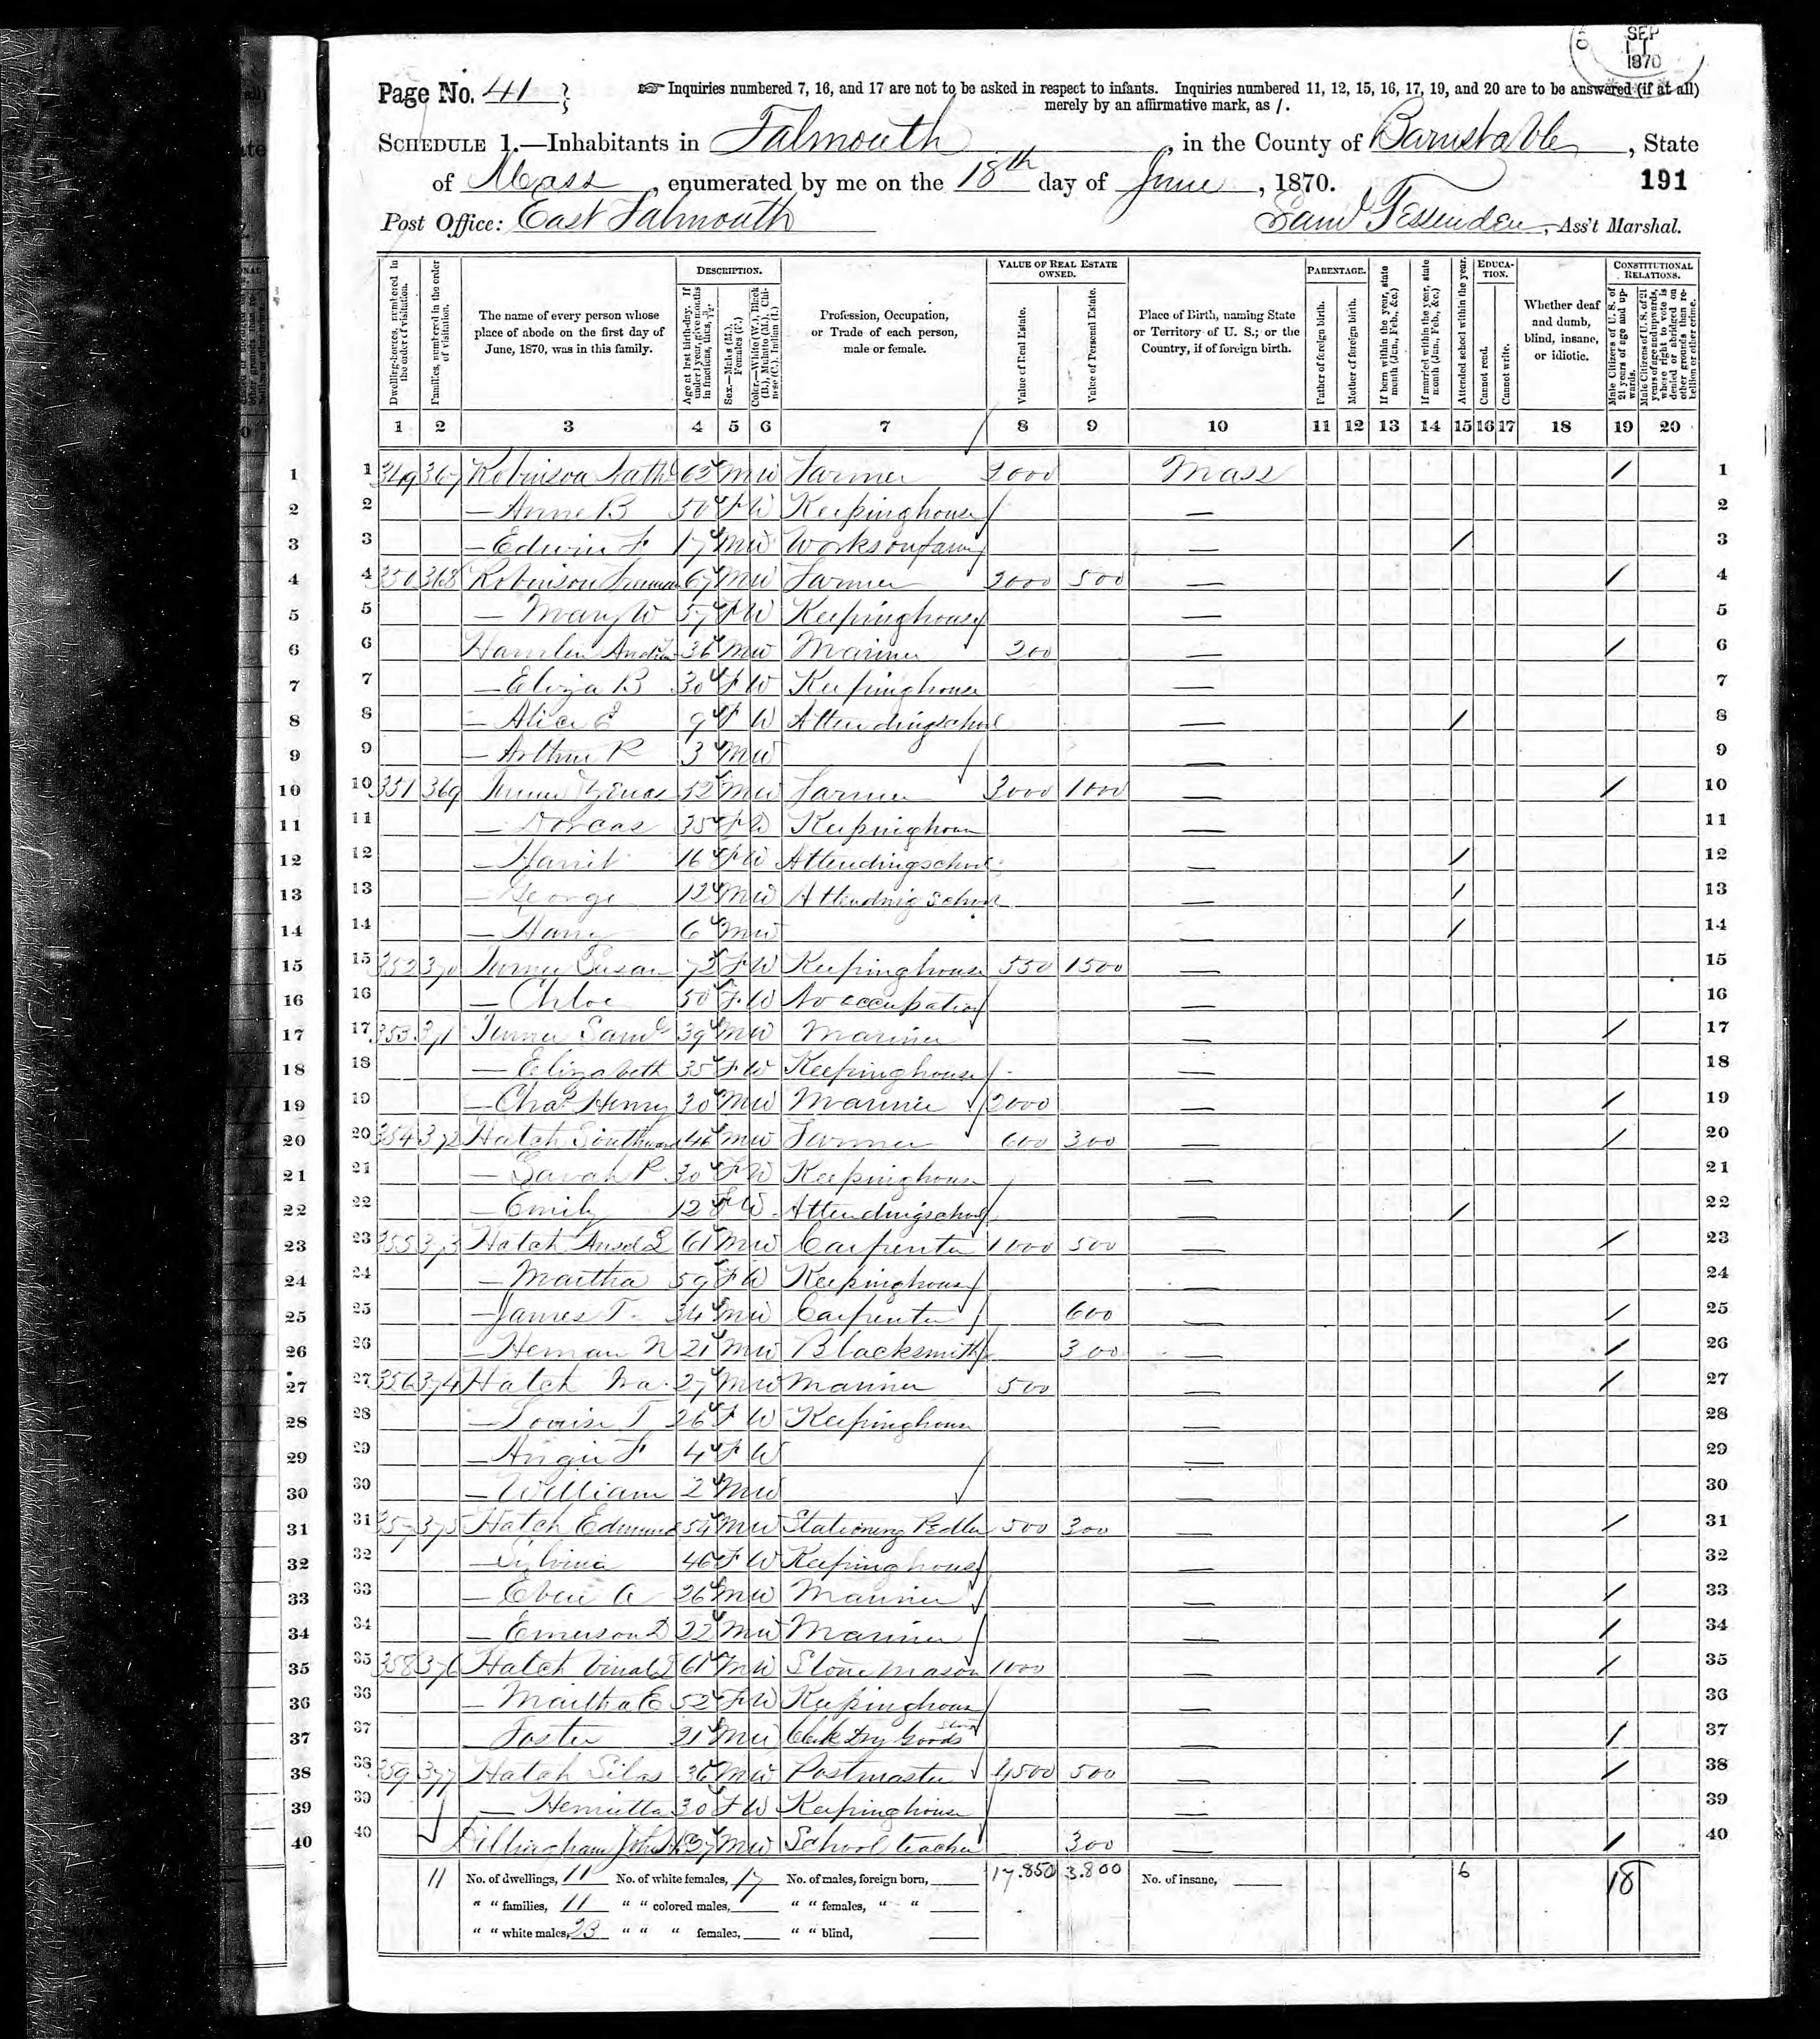 SEP
11
1870
Page No. 41
Inquiries numbered 7, 16, and 17 are not to be asked in respect to infants. Inquiries numbered 11, 12, 15, 16, 17, 19, and 20 are to be answered (if at all)
merely by an affirmative mark, as /.
SCHEDULE 1.—Inhabitants in Falmouth, in the County of Barnstable, State
of Mass, enumerated by me on the 18th day of June, 1870. 191
Post Office: East Falmouth Saml Fessenden, Ass't Marshal.
Dwelling-houses, numbered in the order of visitation.
Families, numbered in the order of visitation.
The name of every person whose place of abode on the first day of June, 1870, was in this family.
DESCRIPTION.
Age at last birth-day. If under 1 year, give months in fractions, thus, 3/12.
Sex.—Males (M.), Females (F.)
Color.—White (W.), Black (B.), Mulatto (M.), Chinese (C.), Indian (I.)
Profession, Occupation, or Trade of each person, male or female.
VALUE OF REAL ESTATE OWNED.
Value of Real Estate.
Value of Personal Estate.
Place of Birth, naming State or Territory of U. S.; or the Country, if of foreign birth.
PARENTAGE.
Father of foreign birth.
Mother of foreign birth.
If born within the year, state month (Jan., Feb., &c.)
If married within the year, state month (Jan., Feb., &c.)
EDUCATION.
Attended school within the year.
Cannot read.
Cannot write.
Whether deaf and dumb, blind, insane, or idiotic.
CONSTITUTIONAL RELATIONS.
Male Citizens of U. S. of 21 years of age and upwards.
Male Citizens of U. S. of 21 years of age and upwards, whose right to vote is denied or abridged on other grounds than rebellion or other crime.
1 2 3 4 5 6 7 8 9 10 11 12 13 14 15 16 17 18 19 20
1 349 367 Robinson Nathl 62 M W Farmer 2000 Mass / 1
2 — Anne B 50 F W Keeping house — 2
3 — Edwin F 17 M W Works on farm — / 3
4 350 368 Robinson Freeman 67 M W Farmer 2000 500 — / 4
5 — Mary W 57 F W Keeping house — 5
6 Hamlin 36 M W Mariner 200 — / 6
7 — Eliza B 30 F W Keeping house — 7
8 — Alice E 9 F W Attending school — / 8
9 — Arthur R 3 M W — 9
10 351 369 Turner Zenas 52 M W Farmer 3000 1000 — / 10
11 — Dorcas 35 F W Keeping house — 11
12 — Harriet 16 F W Attending school — / 12
13 — George 12 M W Attending school — / 13
14 — Harry 6 M W — / 14
15 352 370 Turner Susan 73 F W Keeping house 550 1500 — 15
16 — Chloe 50 F W No occupation — 16
17 353 371 Turner Saml 39 M W Mariner — / 17
18 — Elizabeth 35 F W Keeping house — 18
19 — Chas Henry 30 M W Mariner 2000 — / 19
20 354 372 Hatch Southward 46 M W Farmer 600 300 — / 20
21 — Sarah P 30 F W Keeping house — 21
22 — Emily 12 F W Attending school — / 22
23 355 373 Hatch Ansel L 61 M W Carpenter 1000 500 — / 23
24 — Martha 59 F W Keeping house — 24
25 — James T. 34 M W Carpenter 600 — / 25
26 — Heman N 21 M W Blacksmith 300 — / 26
27 356 374 Hatch Ira 27 M W Mariner 500 — / 27
28 — Louise T 26 F W Keeping house — 28
29 — Angie F 4 F W — 29
30 — William 2 M W — 30
31 357 375 Hatch Edmund 54 M W Stationery Pedler 500 300 — / 31
32 — Sylvina 46 F W Keeping house — 32
33 — Eben A 26 M W Mariner — / 33
34 — Emerson D 22 M W Mariner — / 34
35 358 376 Hatch Vinal 61 M W Stone Mason 1000 — / 35
36 — Martha E 52 F W Keeping house — 36
37 Foster 21 M W Clerk Dry Goods Store — / 37
38 359 377 Hatch Silas 36 M W Postmaster 4500 500 — / 38
39 — Henrietta 30 F W Keeping house — 39
40 Dillingham John 37 M W School teacher 300 — / 40
11 No. of dwellings, 11 No. of white females, 17 No. of males, foreign born, 17.850 3.800 No. of insane, 6 18
" " families, 11 " " colored males, " " females, " "
" " white males, 23 " " " females, " " blind,